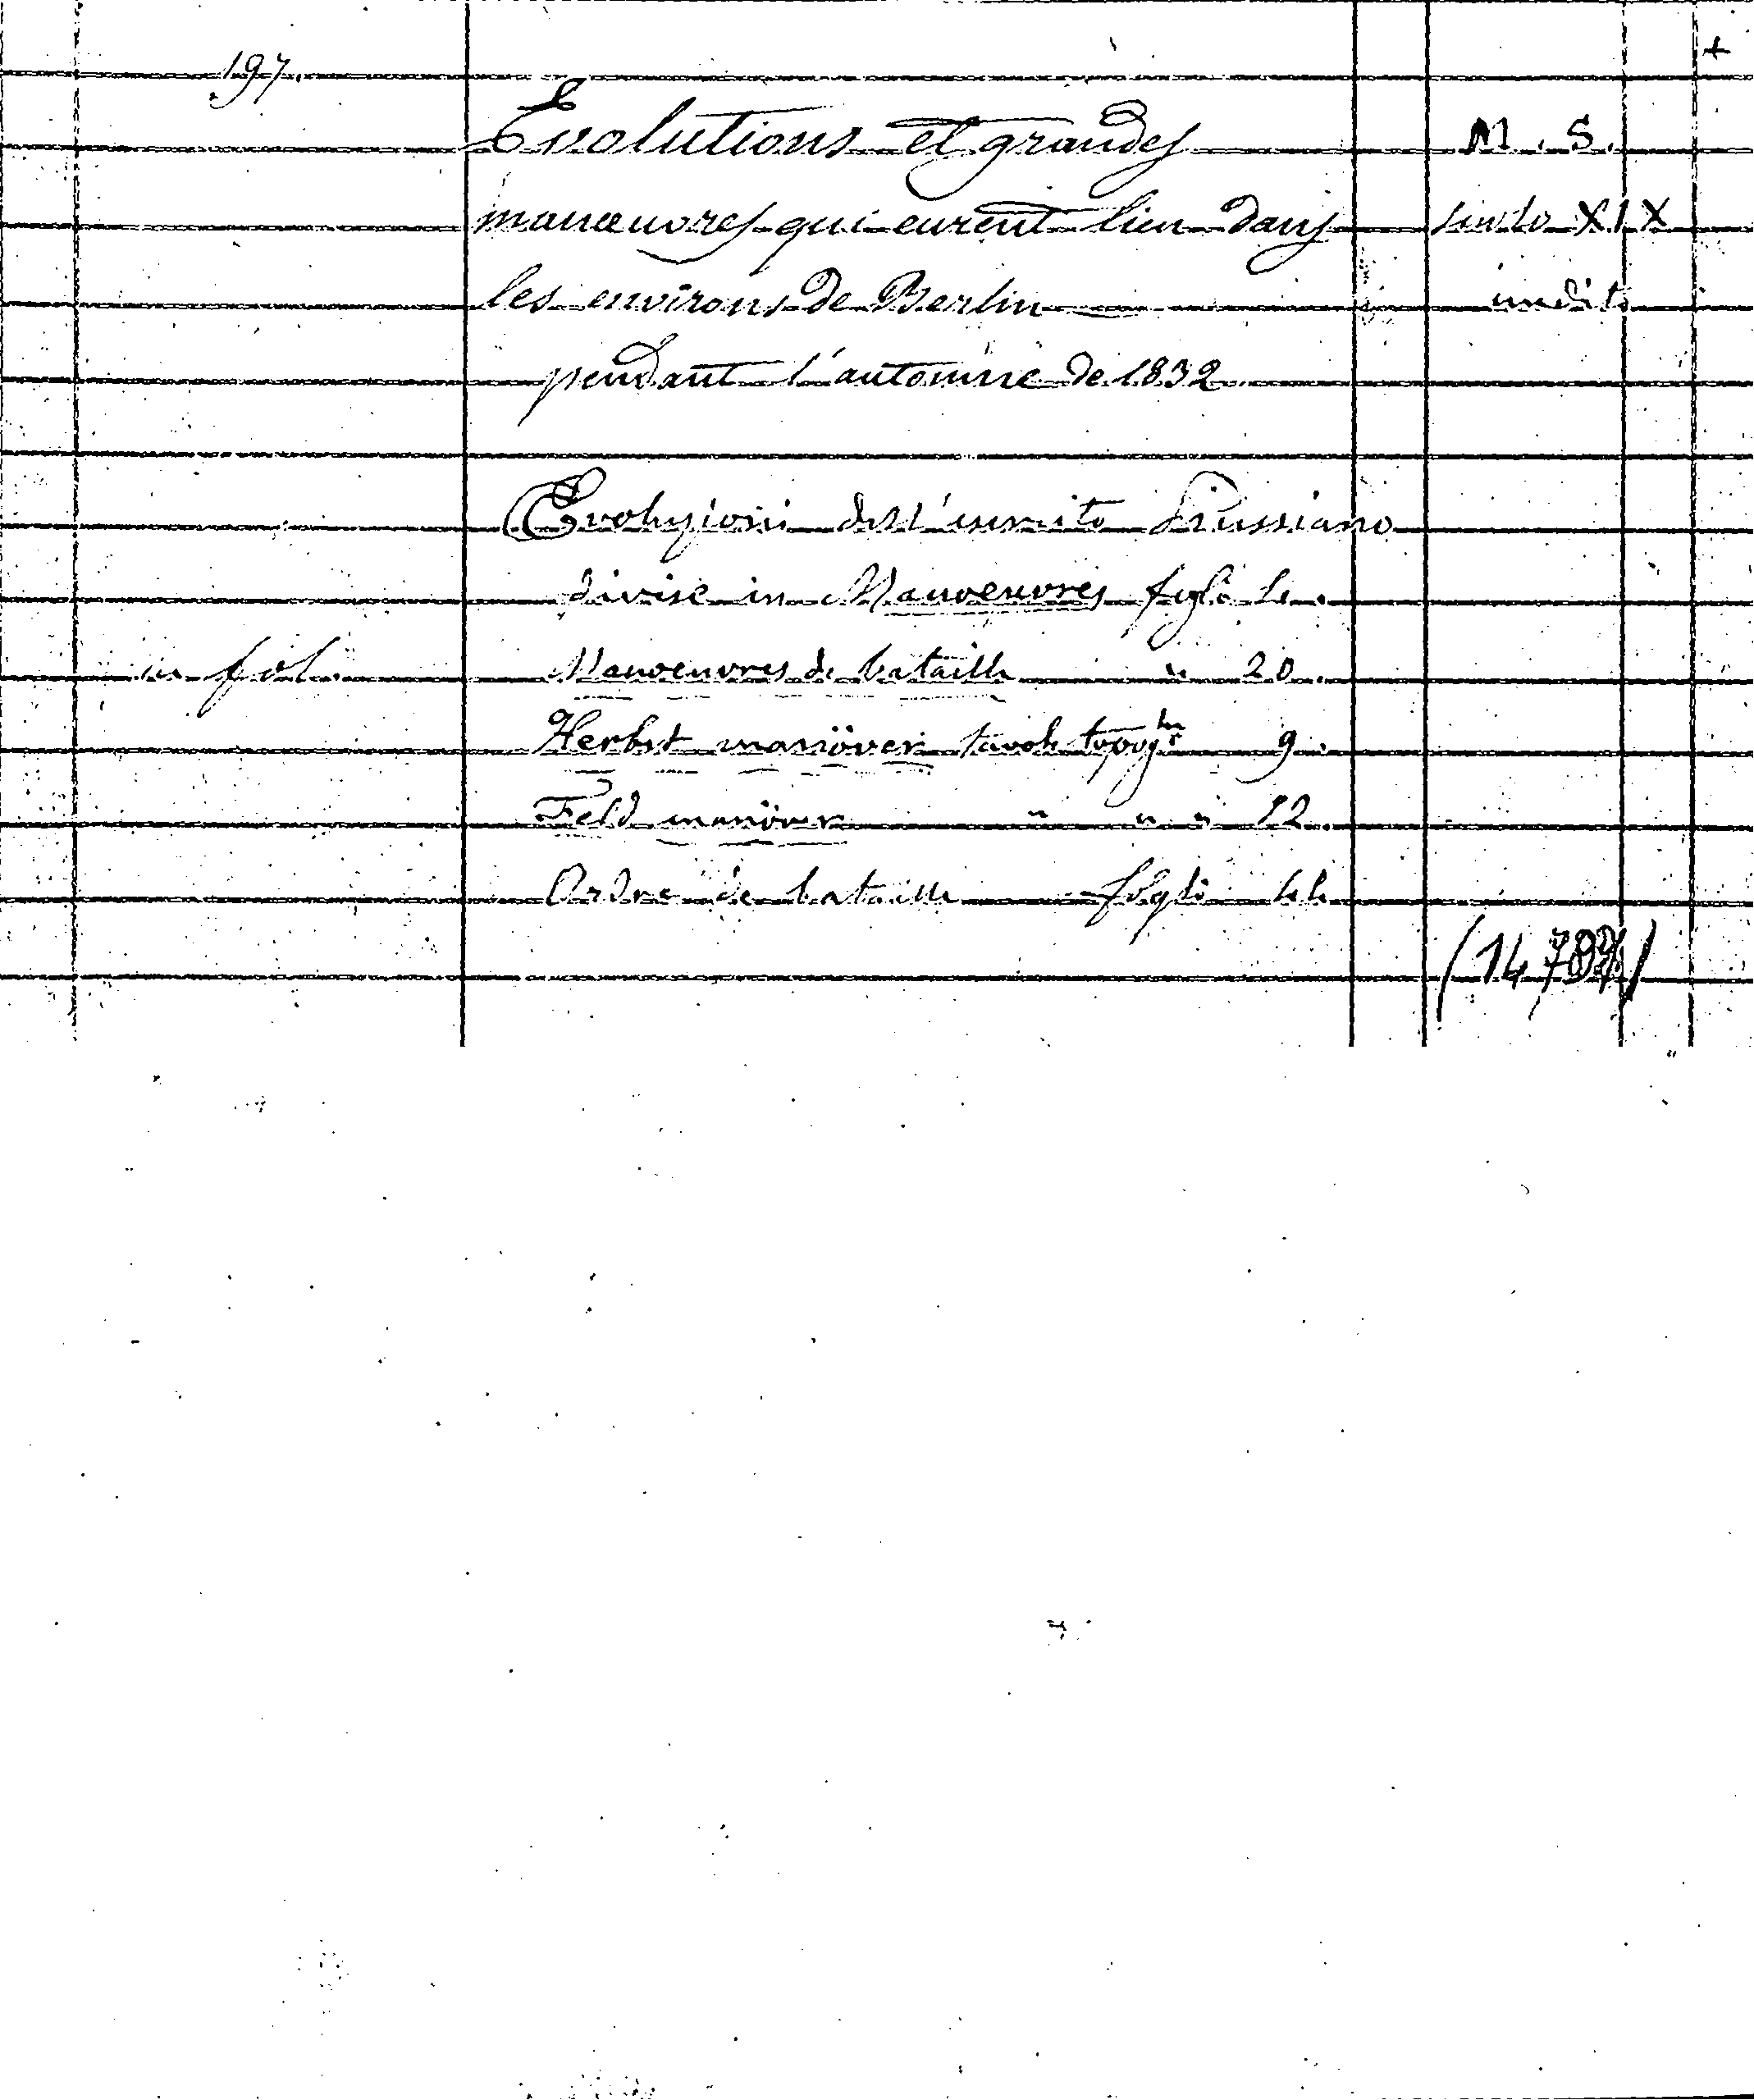 +
197.
Evolutions et grandes M. S.
manœuvres qui eurent lieu dans secolo XIX
les environs de Berlin inedito
pendant l'automne de 1832
Evoluzioni dell'esercito Prussiano
divise in Manoeuvres fogli 4.
in fol. Manoeuvres de bataille " 20.
Herbst manöver tavole topogr.he 9.
Feld manöver " " " 12.
Ordre de bataille fogli 44